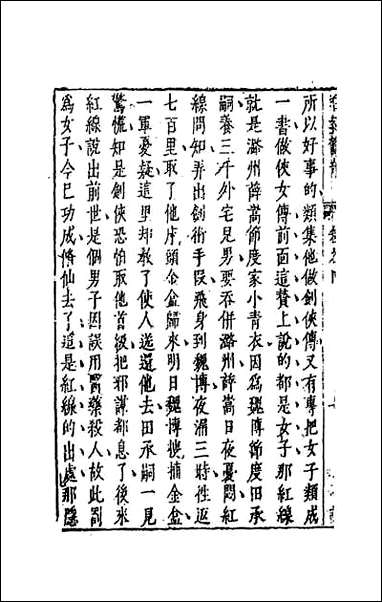 所以好事的類集他做劍俠傳又有專把女子類成
一書做俠女傳前面這贊上說的都是女子那紅線
就是潞州薛嵩節度家小青衣因爲魏博節度田承
嗣養三千外宅兒男要吞併潞州薛嵩日夜憂悶紅
線聞知弄出劍術手段飛身到魏博夜漏三時往返
七百里取了他床頭金盒歸來明日魏博搜捕金盒
一軍憂疑這里却教了使人送還他去田承嗣一見
驚慌知是劍俠恐怕取他首級把邪謀都息了後來
紅線說出前世是個男子因誤用醫藥殺人故此罰
爲女子今已功成脩仙去了這是紅線的出處那隱